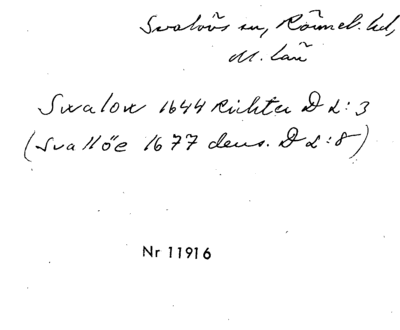 Svalövs sn, Rönneb. hd,
M. län
Swalow 1644 Richter D L:3
(Svallöe 1677 dens. D L:8)
Nr 11916